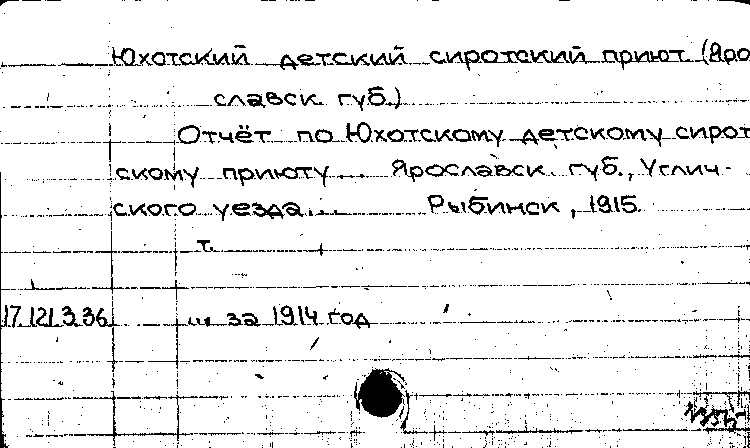 Юхотский детский сиротский приют (Яро
славск. губ.)
Отчёт по Юхотскому детскому сирот
скому приюту... Ярославск. губ., Углич-
ского уезда... Рыбинск, 1915.
т.
17.121.3.36 ... за 1914 год